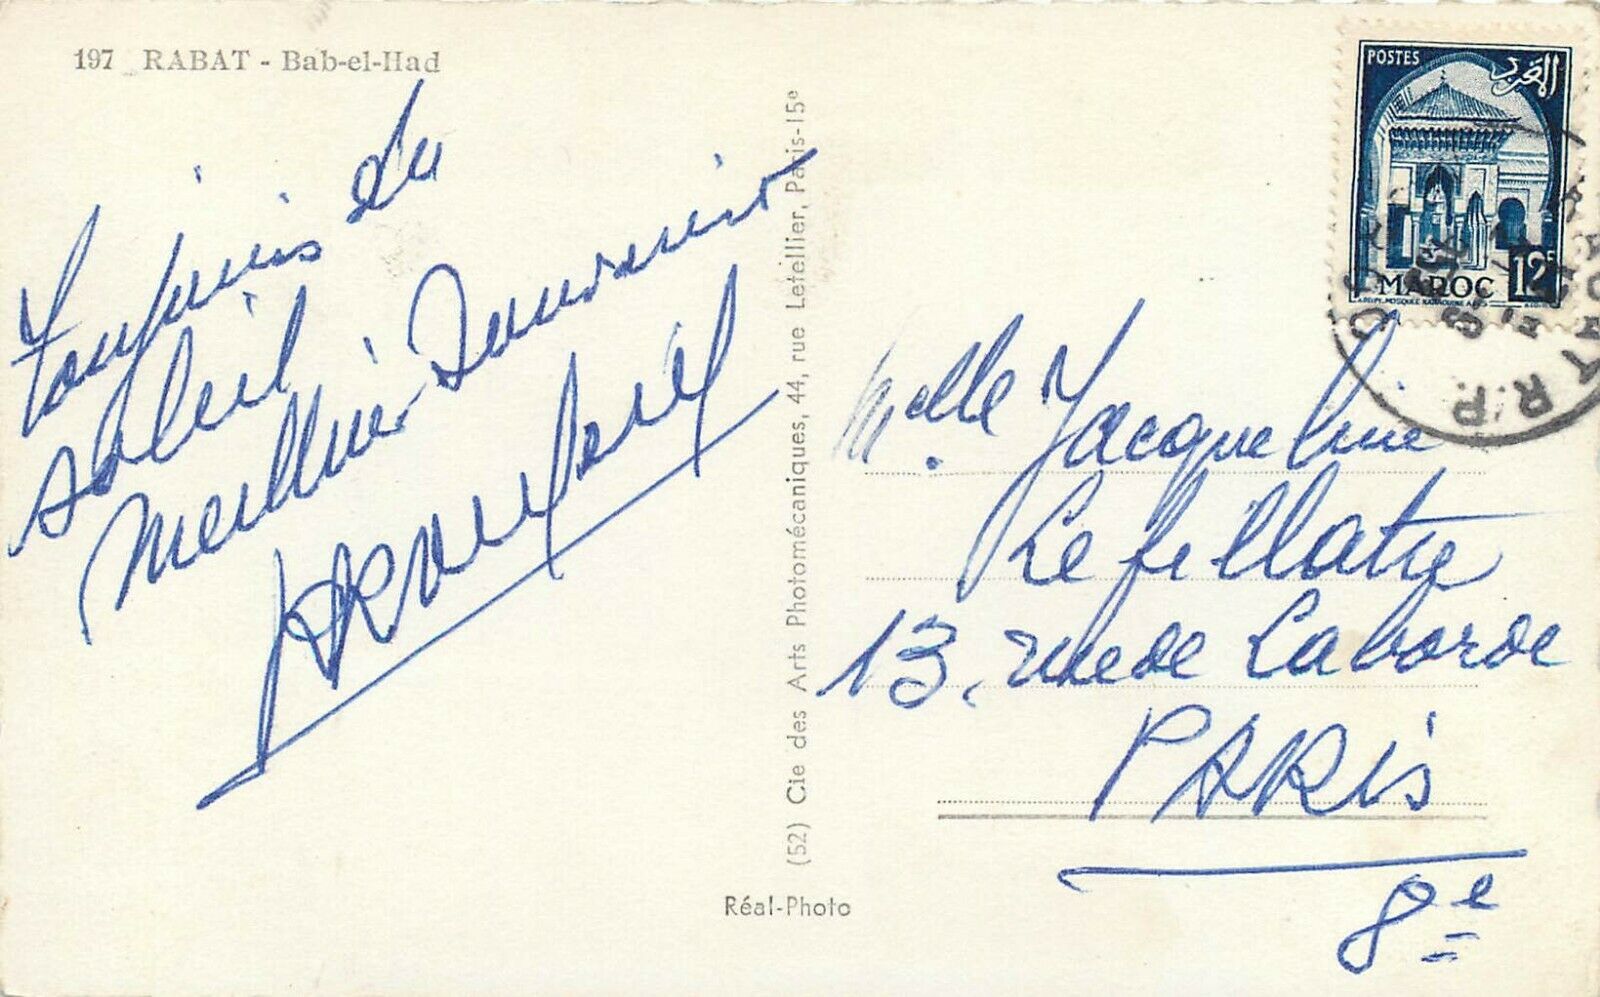 197 RABAT - Bab-el-Had
Toujours du
soleil
Meilleur Souvenir
(52) Cie des Arts Photomécaniques, 44, rue Letellier, Paris-15e
Réal-Photo
POSTES
المغرب
12F
MAROC
RABAT R.P.
Melle Jacqueline
Lefillatre
13, rue de Laborde
PARIS
8e